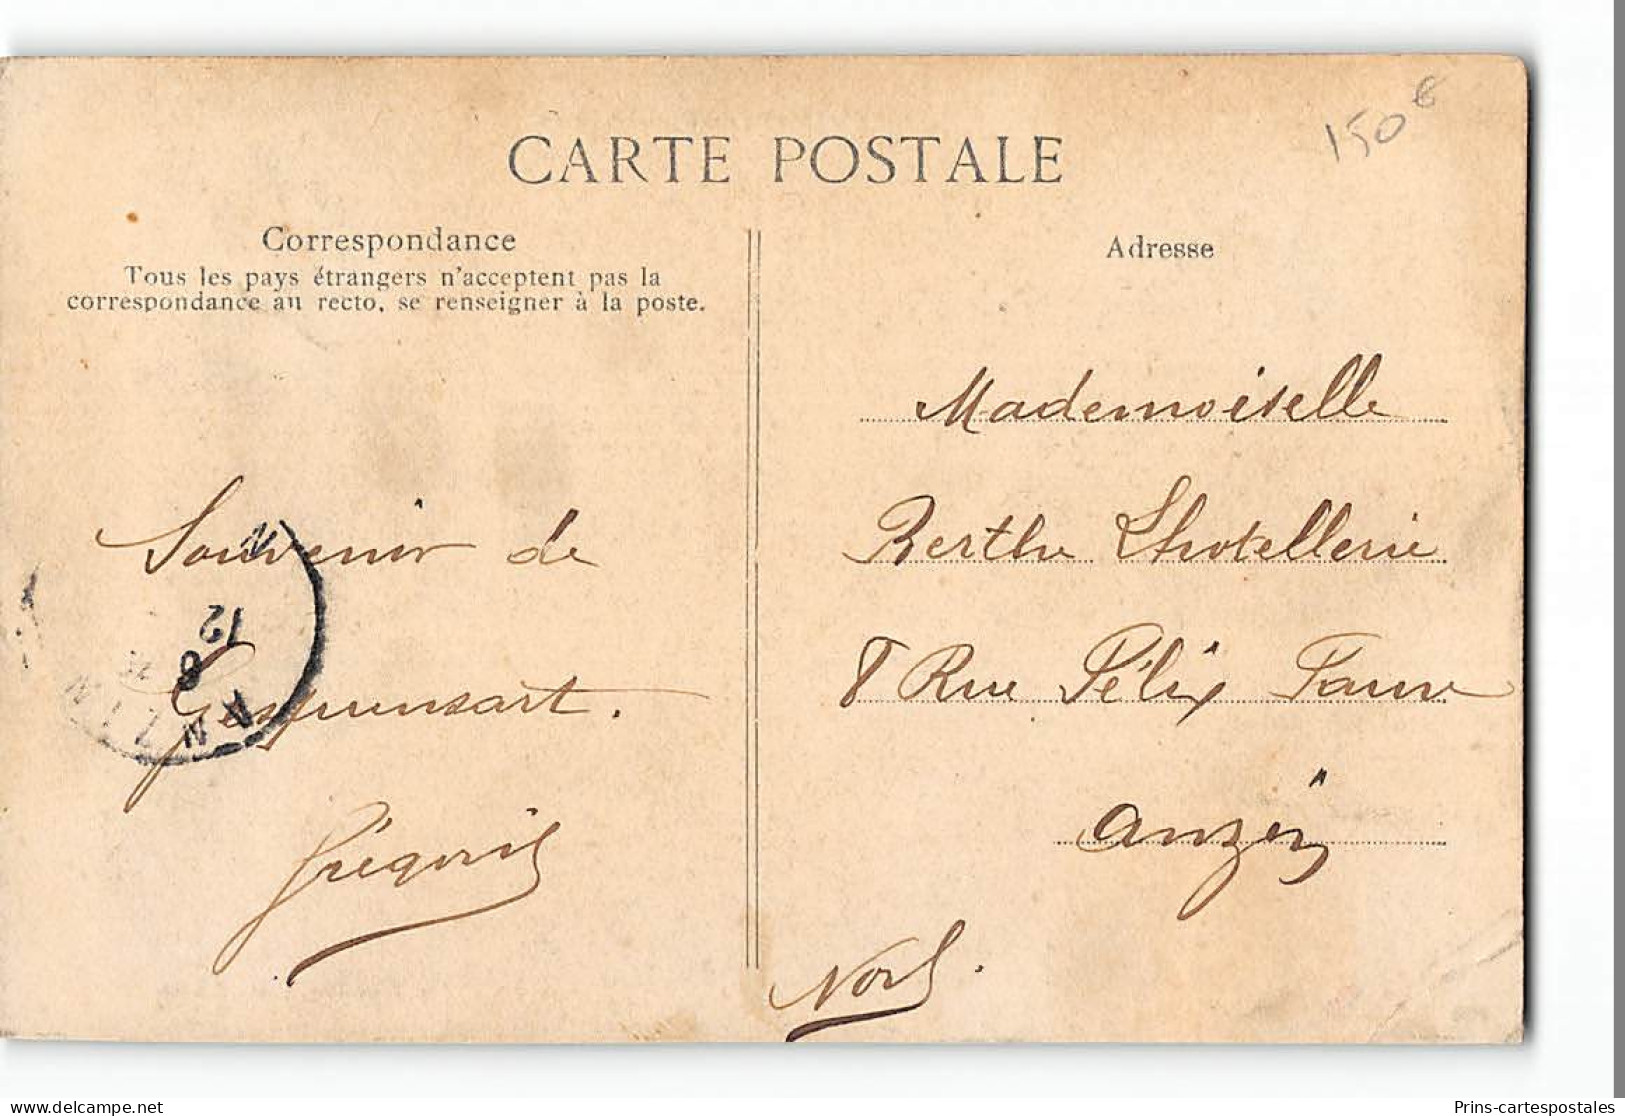 150€
CARTE POSTALE
Correspondance
Tous les pays étrangers n'acceptent pas la
correspondance au recto, se renseigner à la poste.
Adresse
Souvenir de
Gespunsart.
Grégoire
Mademoiselle
Berthe Lhotellerie
8 Rue Félix Faure
Anzin
Nord.
12
8
ANZIN
delcampe.net
Prins-cartespostales